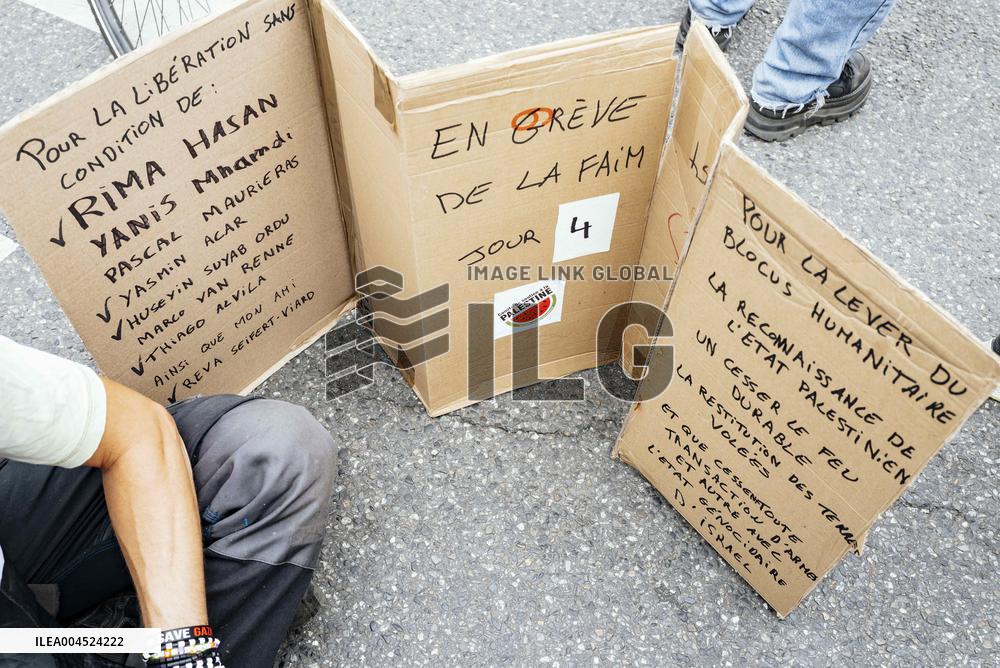 POUR LA LIBÉRATION SANS
CONDITION DE :
✓RIMA HASAN
YANIS Mhamdi
PASCAL MAURIERAS
✓YASMIN ACAR
✓HUSEYIN SUYAB ORDU
MARCO VAN RENNE
✓THIAGO AVILA
AINSI QUE MON AMI
✓REVA SEIFERT-VIARD
EN GRÈVE
DE LA FAIM
JOUR 4
PALESTINE
POUR LA LEVER DU
BLOCUS HUMANITAIRE
LA RECONNAISSANCE DE
L'ETAT PALESTINIEN
UN CESSER LE FEU
DURABLE
LA RESTITUTION DES TERRES
VOLÉES
ET QUE CESSENT TOUTE
TRANSACTION D'ARMES
ET AUTRE AVEC
L'ETAT GÉNOCIDAIRE
D'ISRAEL
SAVE GAZA
IMAGE LINK GLOBAL
ILG
ILEA004524222